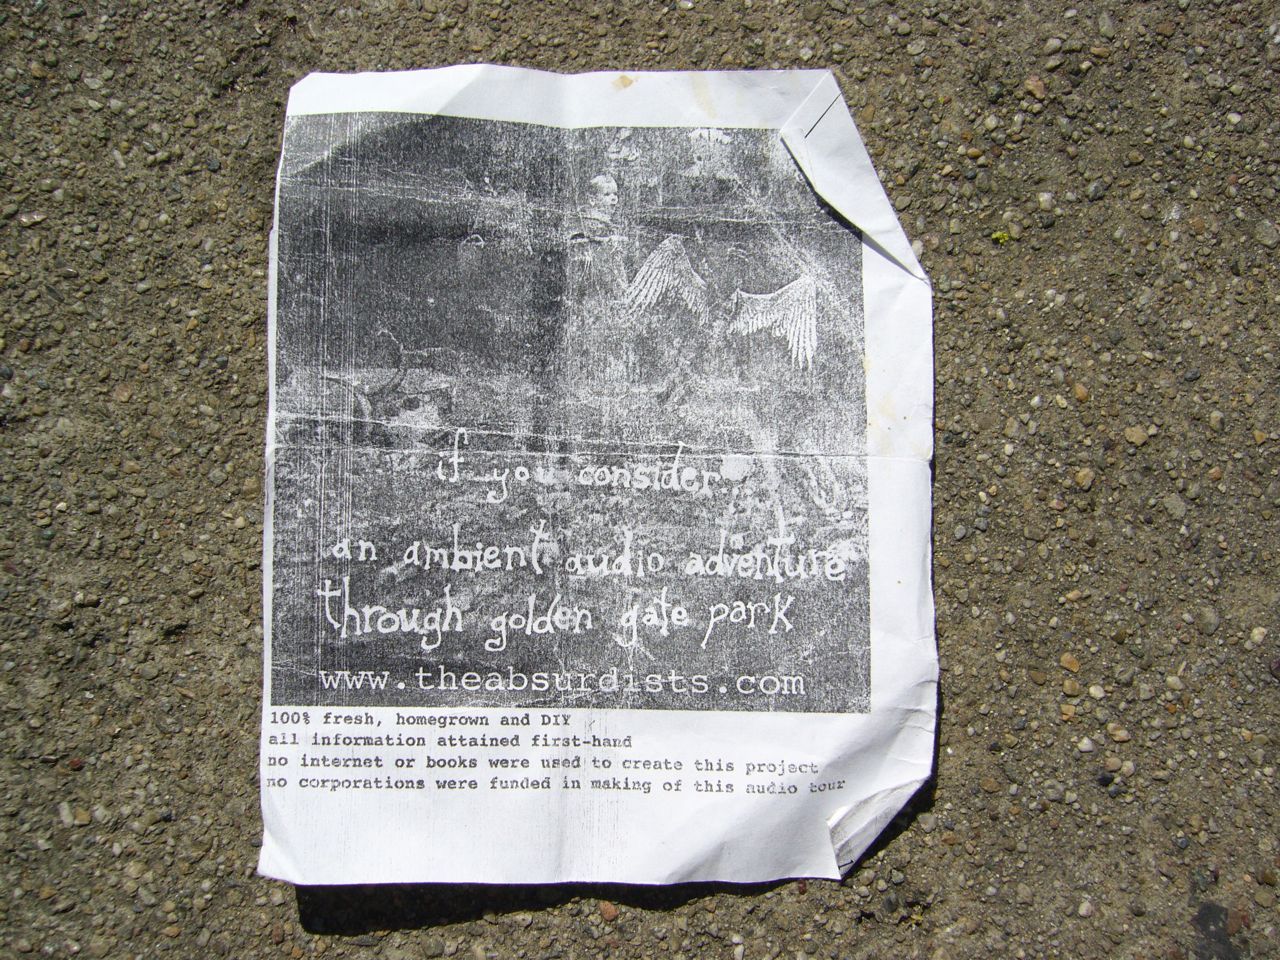 if you consider
an ambient audio adventure
through golden gate park
www.theabsurdists.com
100% fresh, homegrown and DIY
all information attained first-hand
no internet or books were used to create this project
no corporations were funded in making of this audio tour